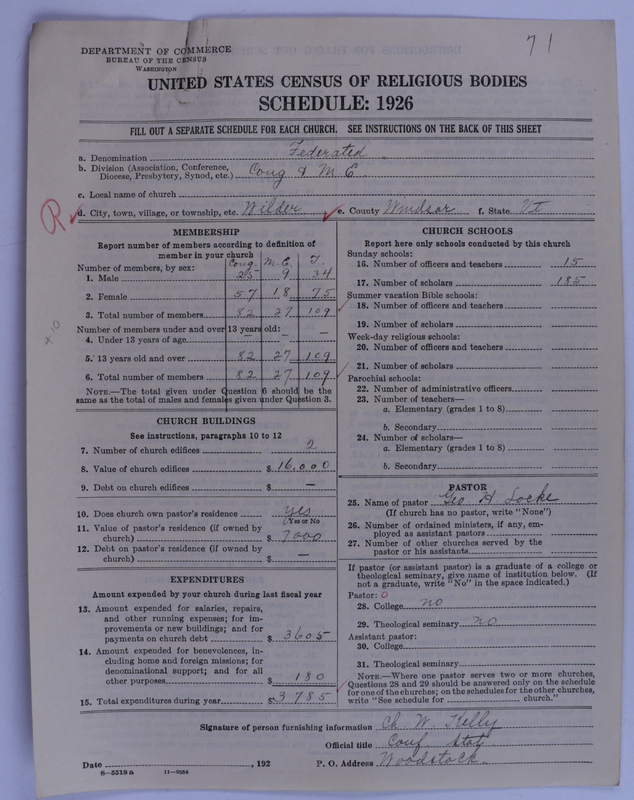 71
DEPARTMENT OF COMMERCE
BUREAU OF THE CENSUS
WASHINGTON
UNITED STATES CENSUS OF RELIGIOUS BODIES
SCHEDULE: 1926
FILL OUT A SEPARATE SCHEDULE FOR EACH CHURCH. SEE INSTRUCTIONS ON THE BACK OF THIS SHEET
a. Denomination Federated
b. Division (Association, Conference, Diocese, Presbytery, Synod, etc.) Cong & M E
c. Local name of church
R d. City, town, village, or township, etc. Wilder e. County Windsor f. State Vt
MEMBERSHIP
Report number of members according to definition of
member in your church
Number of members, by sex: Cong. M.E. T.
1. Male 25 9 34
2. Female 57 18 75
3. Total number of members 82 27 109
Number of members under and over 13 years old:
4. Under 13 years of age — — —
5. 13 years old and over 82 27 109
6. Total number of members 82 27 109
NOTE.—The total given under Question 6 should be the
same as the total of males and females given under Question 3.
CHURCH BUILDINGS
See instructions, paragraphs 10 to 12
7. Number of church edifices 2
8. Value of church edifices $16,000
9. Debt on church edifices $ —
10. Does church own pastor's residence yes
(Yes or No)
11. Value of pastor's residence (if owned by
church) $ 7000
12. Debt on pastor's residence (if owned by
church) $ —
EXPENDITURES
Amount expended by your church during last fiscal year
13. Amount expended for salaries, repairs,
and other running expenses; for im-
provements or new buildings; and for
payments on church debt $ 3605
14. Amount expended for benevolences, in-
cluding home and foreign missions; for
denominational support; and for all
other purposes $ 180
15. Total expenditures during year $3785
CHURCH SCHOOLS
Report here only schools conducted by this church
Sunday schools:
16. Number of officers and teachers 15
17. Number of scholars 185
Summer vacation Bible schools:
18. Number of officers and teachers
19. Number of scholars
Week-day religious schools:
20. Number of officers and teachers
21. Number of scholars
Parochial schools:
22. Number of administrative officers
23. Number of teachers—
a. Elementary (grades 1 to 8)
b. Secondary
24. Number of scholars—
a. Elementary (grades 1 to 8)
b. Secondary
PASTOR
25. Name of pastor Geo H Locke
(If church has no pastor, write "None")
26. Number of ordained ministers, if any, em-
ployed as assistant pastors
27. Number of other churches served by the
pastor or his assistants
If pastor (or assistant pastor) is a graduate of a college or
theological seminary, give name of institution below. (If
not a graduate, write "No" in the space indicated.)
Pastor: 0
28. College no
29. Theological seminary no
Assistant pastor:
30. College
31. Theological seminary
NOTE.—Where one pastor serves two or more churches,
Questions 28 and 29 should be answered only on the schedule
for one of the churches; on the schedules for the other churches,
write "See schedule for church."
Signature of person furnishing information Ch. W. Kelly
Official title Conf Staty
Date , 192 P. O. Address Woodstock
8—5318a 11—9054